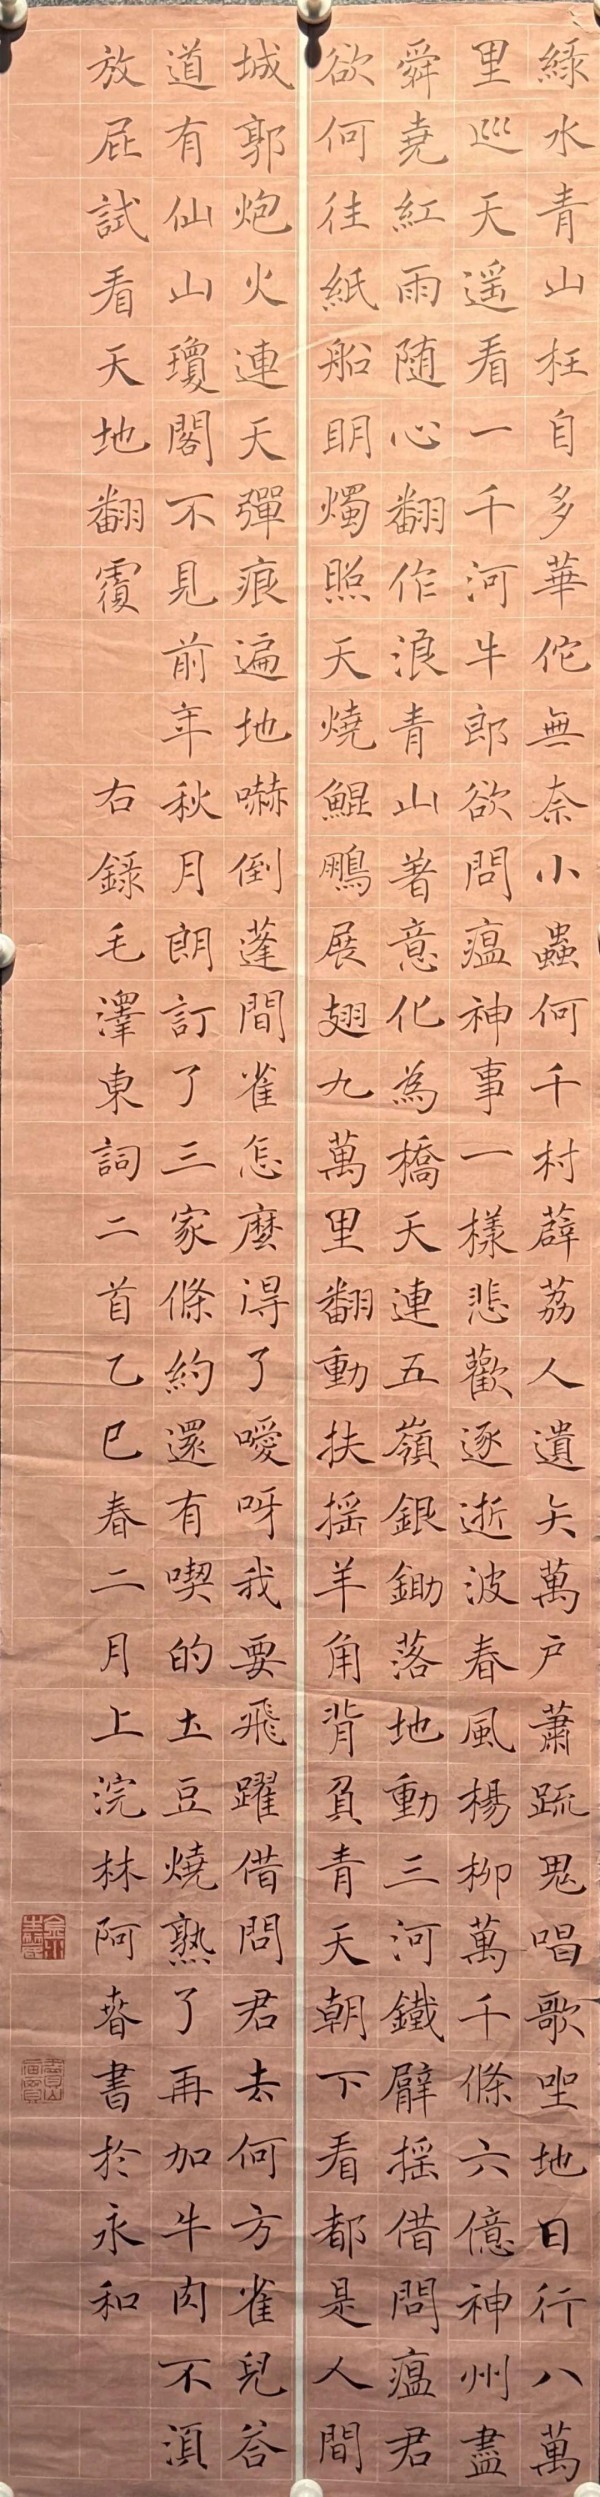 綠水青山枉自多華佗無奈小蟲何千村薜荔人遺矢萬戶蕭疏鬼唱歌坐地日行八萬
里巡天遥看一千河牛郎欲問瘟神事一樣悲歡逐逝波春風楊柳萬千條六億神州盡
舜堯紅雨随心翻作浪青山著意化為橋天連五嶺銀鋤落地動三河鐵臂摇借問瘟君
欲何往紙船明燭照天燒鯤鵬展翅九萬里翻動扶摇羊角背負青天朝下看都是人間
城郭炮火連天彈痕遍地嚇倒蓬間雀怎麼得了噯呀我要飛躍借問君去何方雀兒答
道有仙山瓊閣不見前年秋月朗訂了三家條約還有喫的土豆燒熟了再加牛肉不須
放屁試看天地翻覆
右錄毛澤東詞二首乙巳春二月上浣林阿春書於永和